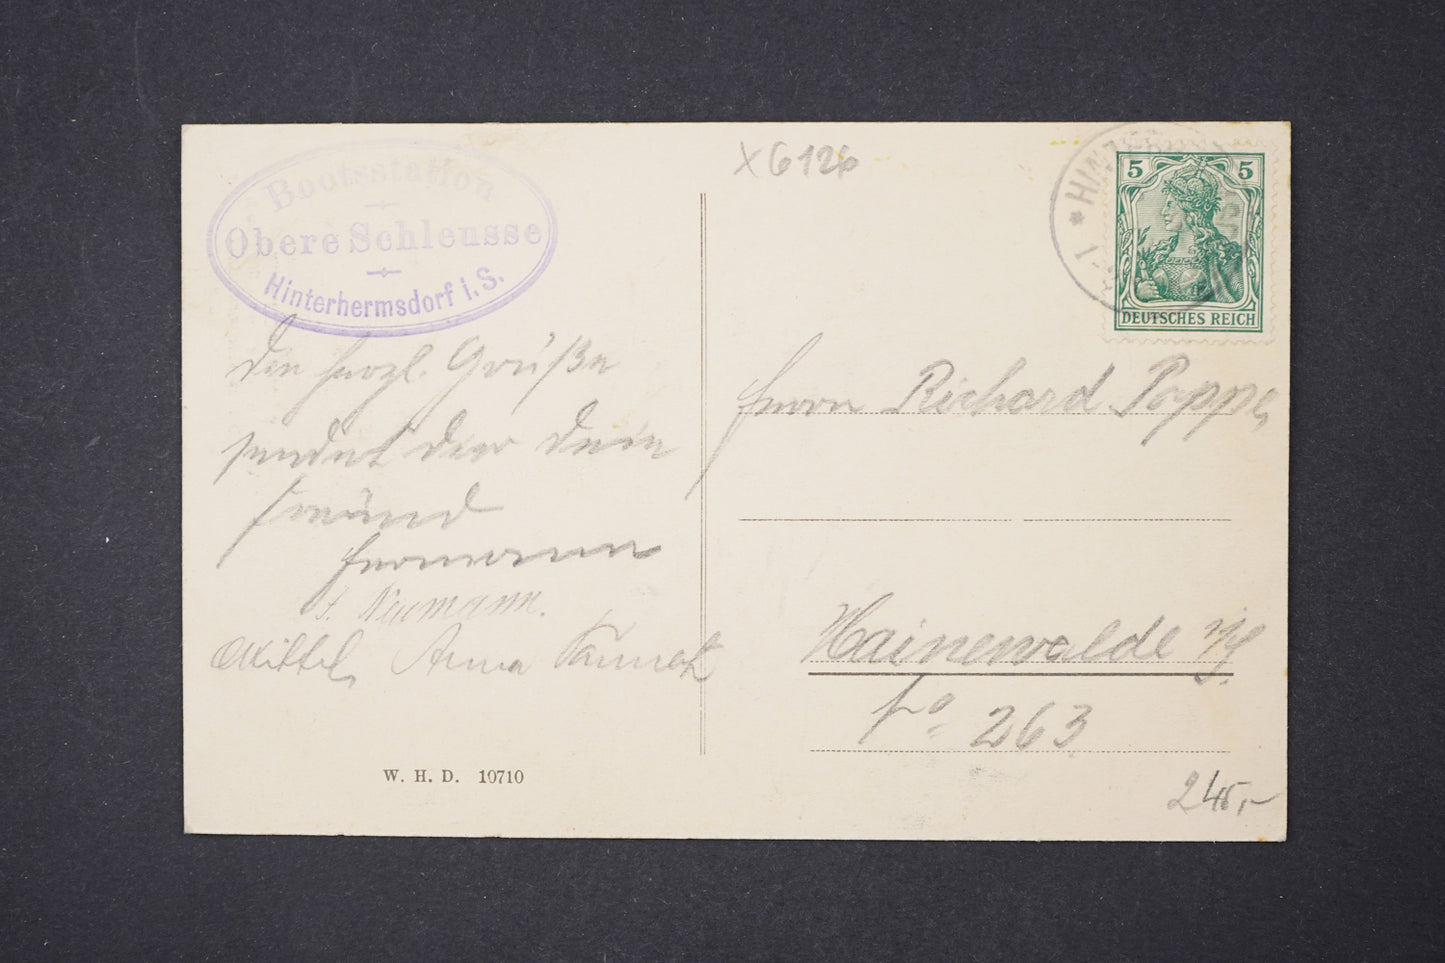 X6126
Bootsstation
Obere Schleusse
Hinterhermsdorf i. S.
5 5
DEUTSCHES REICH
* HINTERH
Die herzl. Grüße
sendet dier dein
Freund
Hermann
Neumann.
Mittel, Anna
Herrn Richard Poppe,
Hainewalde
No 263
W. H. D. 10710
245,-